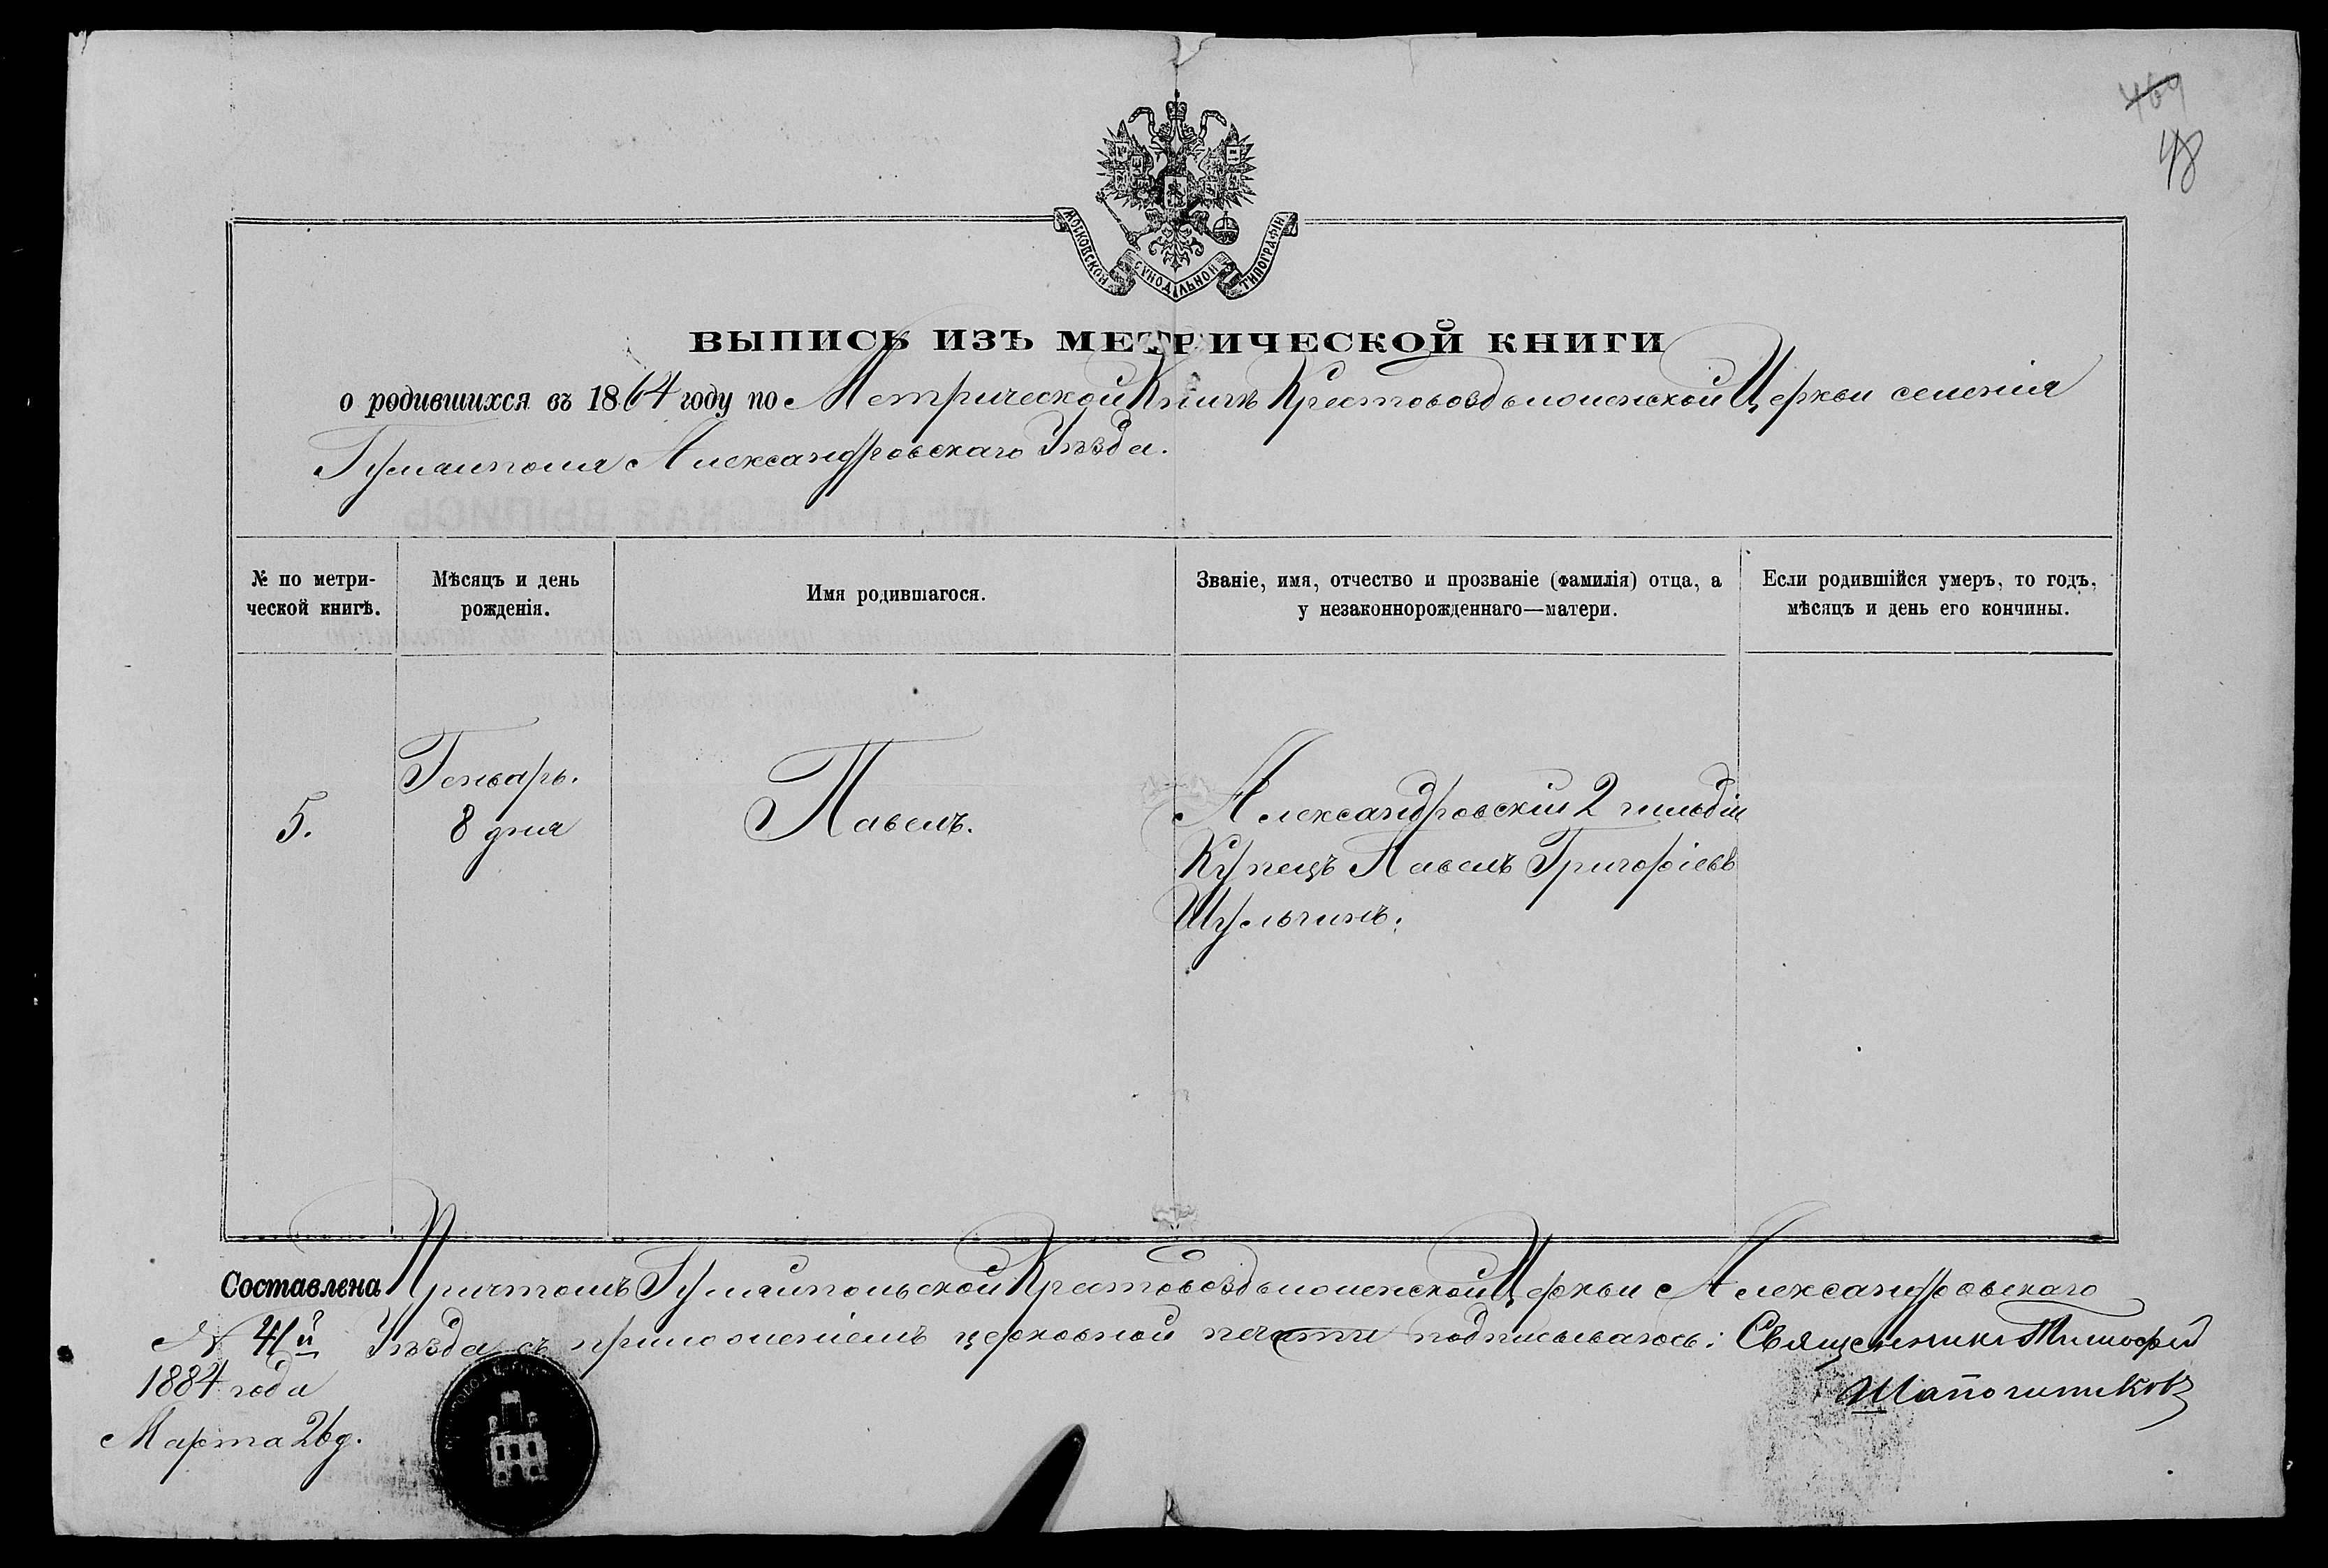 469
48
МОСКОВСКОЙ СѴНОДАЛЬНОЙ ТИПОГРАФІИ
ВЫПИСЬ ИЗЪ МЕТРИЧЕСКОЙ КНИГИ
о родившихся въ 1864 году по Метрической Книгѣ Крестовоздвиженской Церкви селенія
Гуляйполя Александровскаго Уѣзда.
№ по метри-
ческой книгѣ.
Мѣсяцъ и день
рожденія.
Имя родившагося.
Званіе, имя, отчество и прозваніе (фамилія) отца, а
у незаконнорожденнаго—матери.
Если родившійся умеръ, то годъ,
мѣсяцъ и день его кончины.
5.
Генварь.
8 дня
Павелъ.
Александровскій 2 гильдіи
Купецъ Павелъ Григоріевъ
Шульгинъ.
Составлена Причтомъ Гуляйпольской Крестовоздвиженской Церкви Александровскаго
Уѣзда съ приложеніемъ церковной печати подписываюсь: Священникъ Тимофей
№ 41й
1884 года
Марта 26 д.